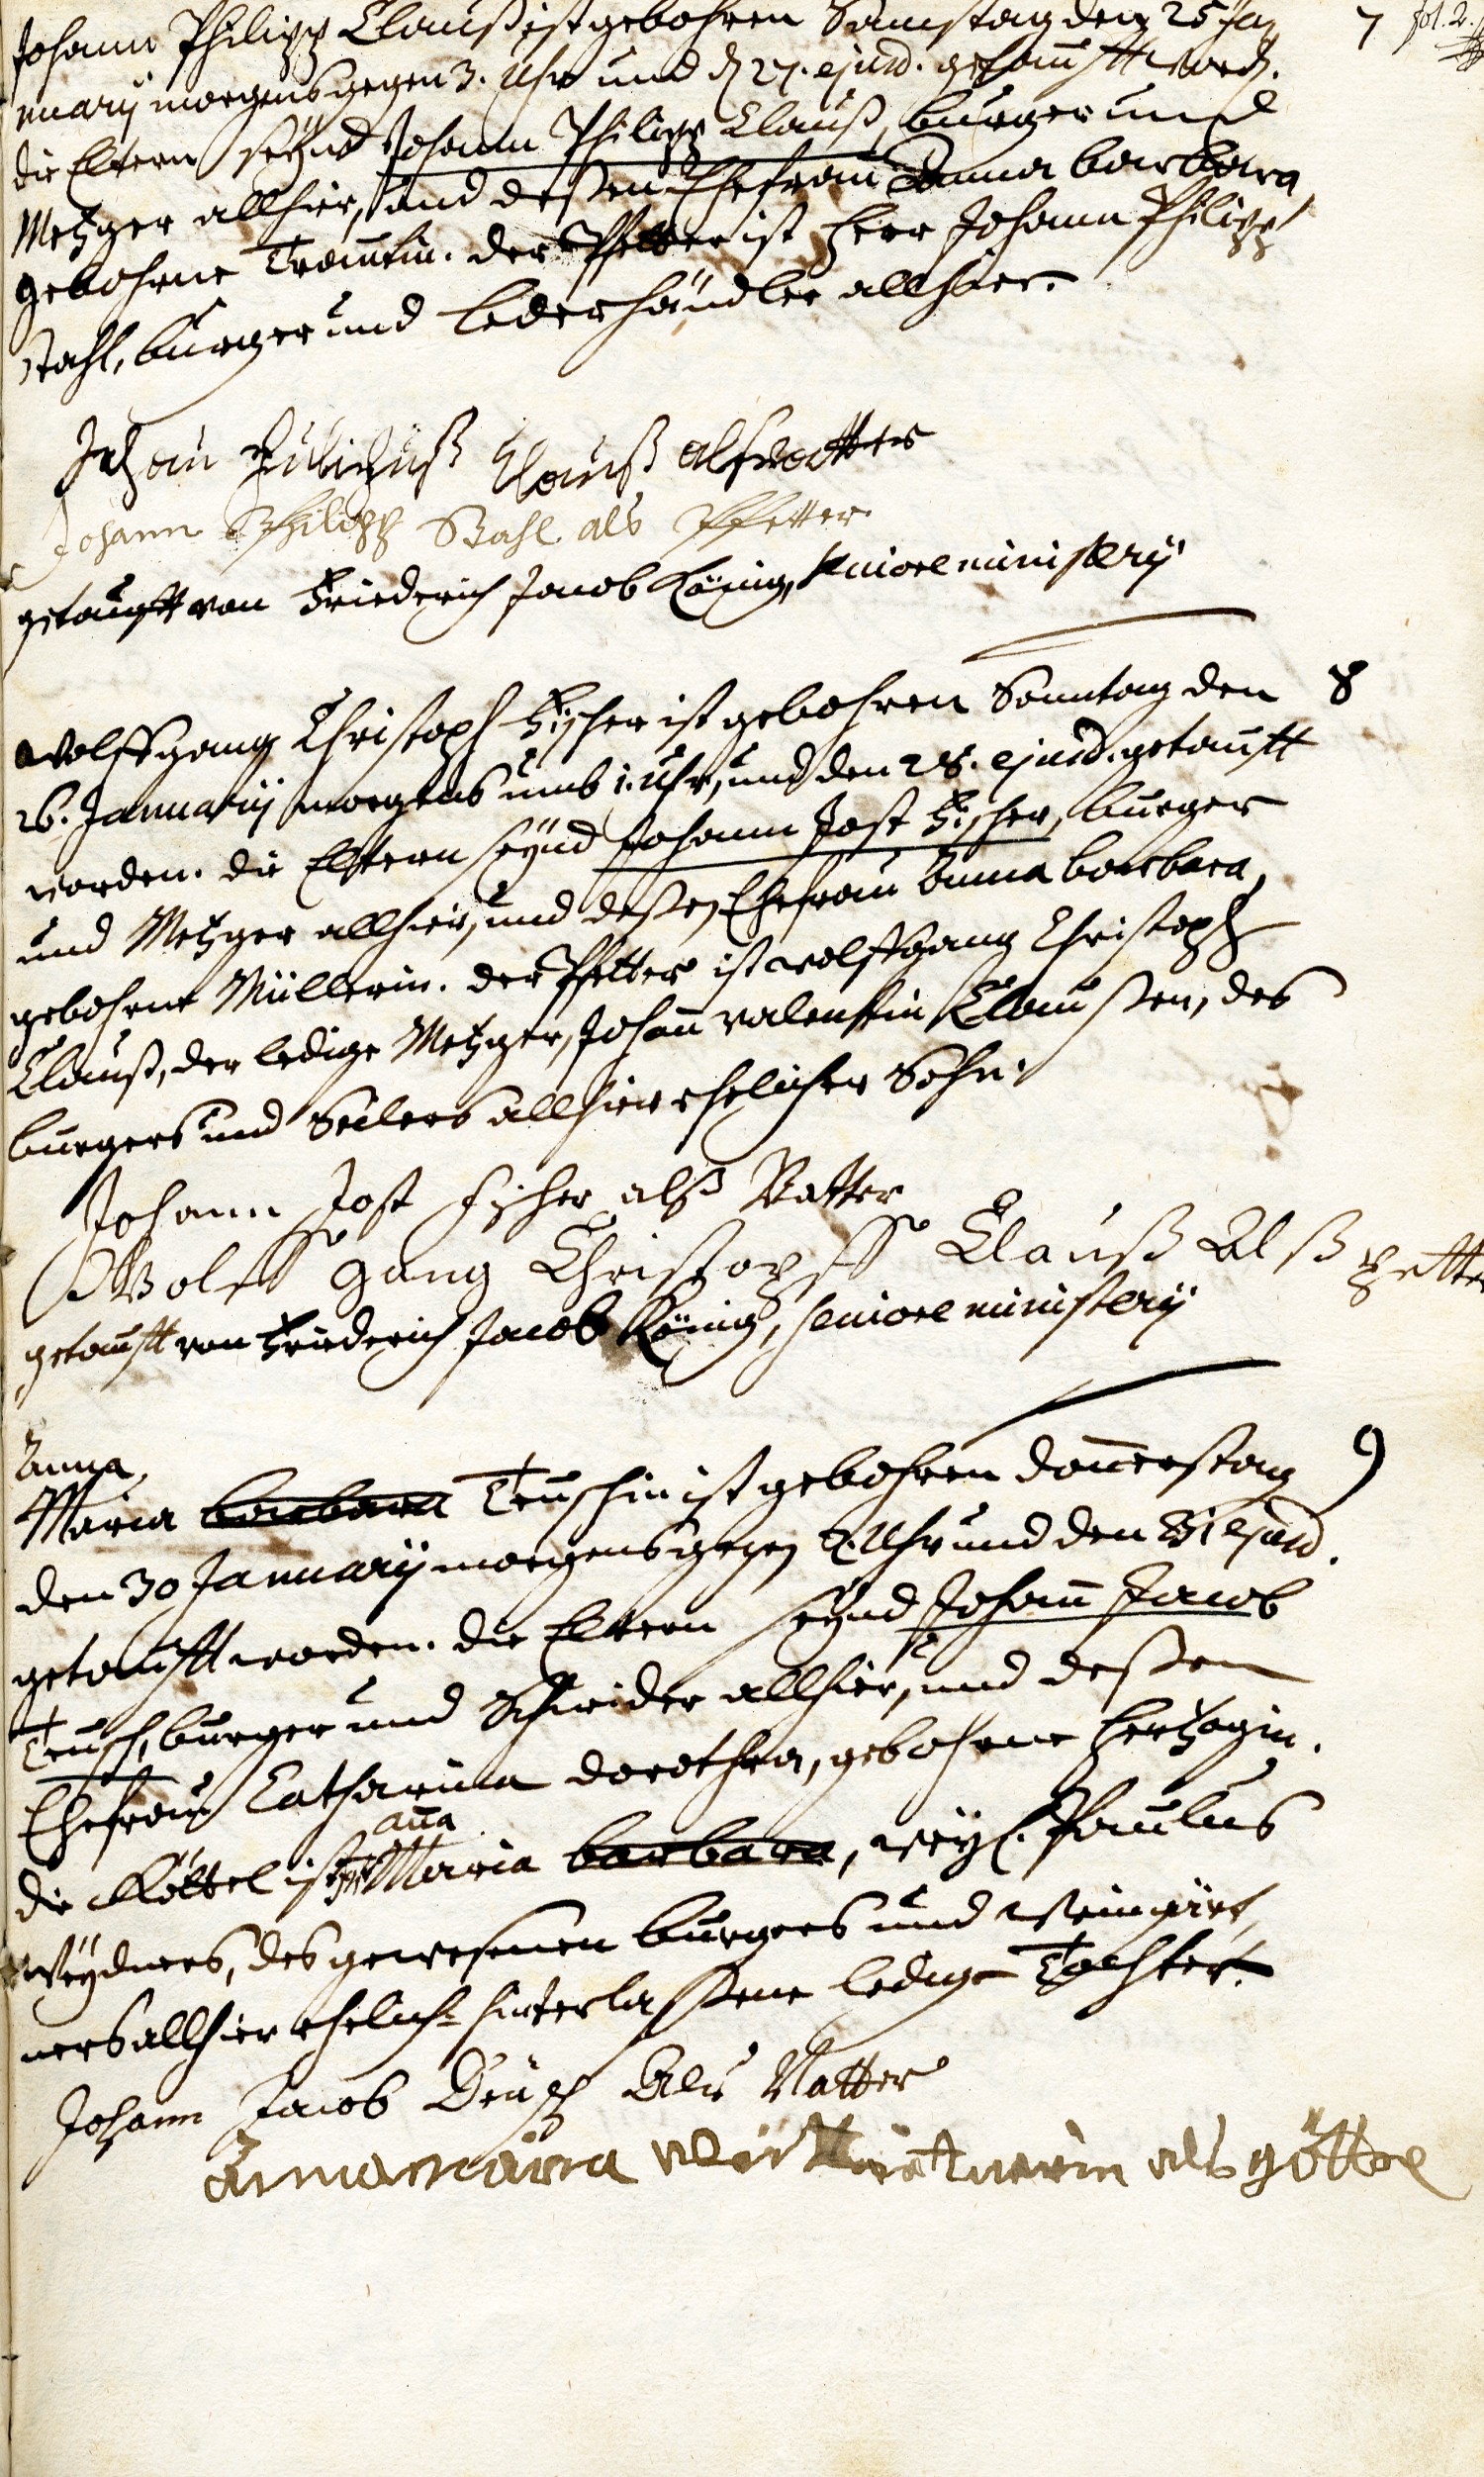 7 fol. 2.
Johann Philipp Clauß ist gebohren Samstag den 25 Ja-
nuarij morgens gegen 3. Uhr und d. 27. ejusd. getaufft word.
die Eltern seÿnd Johann Philipp Clauß, burger und
Metzger allhier, und deßen Ehefrau Anna barbara
gebohrne Trautin. der Pfetter ist herr Johann Philipp
Stahl, burger und Lederhändler allhier.
Johan Philipuß Clauß alß vatter
Johann Philipp Stahl als Pfetter
getaufft von Friederich Jacob König, seniore ministerij
Wolffgang Christoph Fischer ist gebohren Sonntag den 8
26. Januarij morgens umb 1. Uhr, und den 28. ejusd. getaufft
worden. die Eltern seÿnd Johann Jost Fischer, burger
und Metzger allhier, und deßen Ehefrau Anna barbara,
gebohrne Müllerin. der Pfetter ist wolffgang Christoph
Clauß, der ledige Metzger, Johañ valentin Claußen, des
burgers und Seilers allhier ehelicher Sohn.
Johann Jost Fischer alß Vatter
Wolff gang Christoph Clauß Alß Pette
getaufft von Friederich Jacob König, seniore ministerij
Anna
Maria barbara Teuschin ist gebohren donnerstag 9
den 30 Januarij morgens gegen 2. Uhr und den 31 ejusd.
getaufft worden. die Eltern seÿnd Johañ Jacob
Teusch, burger und Schneider allhier, und deßen
Ehefrau Catharina dorothea, gebohrne hertzogin.
aña
die Göttel ist Maria barbara, weÿl. Paulus
Weÿdners, des gewesenen burgers und
ners allhier ehelich hinterlaßene ledige Tochter.
Johann Jacob Deusch Als Vatter
Annamaria als göttel